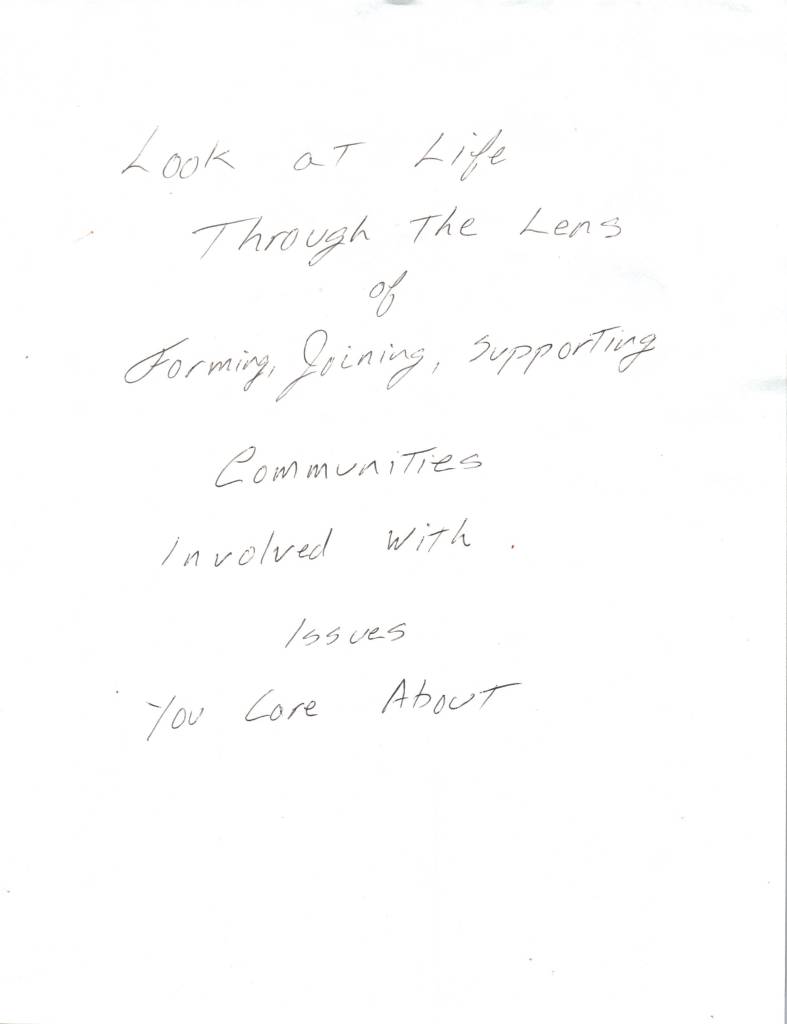 Look at Life
Through The Lens
of
Forming, Joining, Supporting
Communities
Involved With
Issues
You Care About